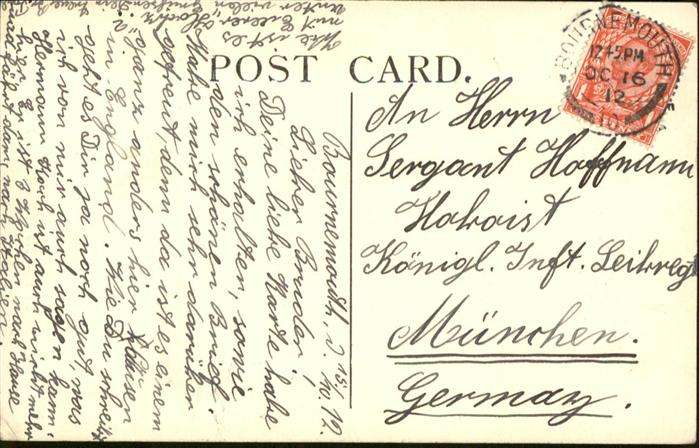 POST CARD.
BOURNEMOUTH
12.15 PM
OC 16
12
An Herrn
Sergant Hoffmann
Hoboist
Königl. Inft. Leibregt
München.
Germany.
Bournemouth, d. 15/
10. 12.
Lieber Bruder!
Deine liebe Karte habe
ich erhalten, sowie
den schönen Brief.
Habe mich sehr darüber
gefreut, denn da ist es einem
ganz anders hier draussen
in England. Wie Du schreibst
geht es Dir ja noch gut, was
ich von mir auch sagen kann.
Hermann Koch ist auch nicht mehr
hier. Er ist 3 Wochen nach Hause
und fährt dann nach Italien.
Wie ist es
mit Euerer
unter vielen